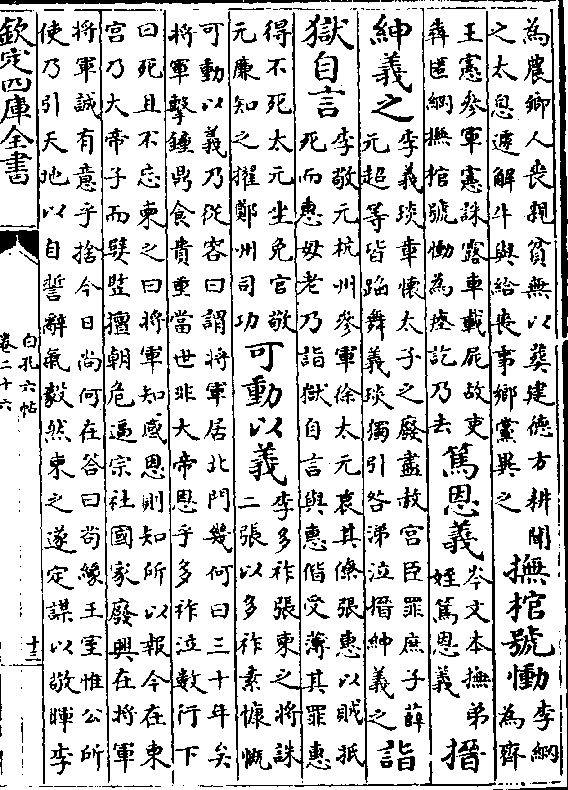 為農鄉人喪親貧無以葬建德方耕聞
之太息遽解牛與給喪事鄉黨異之
撫棺號慟
李綱
為齊
王憲參軍憲誅露車載屍故吏
犇匿綱撫棺號慟為瘞訖乃去
篤恩義
岑文本撫弟
姪篤恩義
搢
紳義之
李義琰章懷太子之廢盡赦宮臣罪庶子薛
元超等皆蹈舞義琰獨引咎涕泣搢紳義之
詣
獄自言
李敬元杭州參軍徐太元哀其僚張惠以贓抵
死而惠母老乃詣獄自言與惠偕受薄其罪惠
得不死太元坐免官敬
元廉知之擢鄭州司功
可動以義
李多祚張柬之將誅
二張以多祚素慷慨
可動以義乃從容曰謂將軍居北門幾何曰三十年矣
將軍擊鍾鼎食貴重當世非大帝恩乎多祚泣數行下
曰死且不忘柬之曰將軍知感恩則知所以報今在東
宮乃大帝子而嬖豎擅朝危逼宗社國家廢興在將軍
將軍誠有意乎捨今日尚何在答曰尚緣王室惟公所
使乃引天地以自誓辭氣毅然柬之遂定謀以敬暉李
欽定四庫全書
白孔六帖
卷二十六
十三